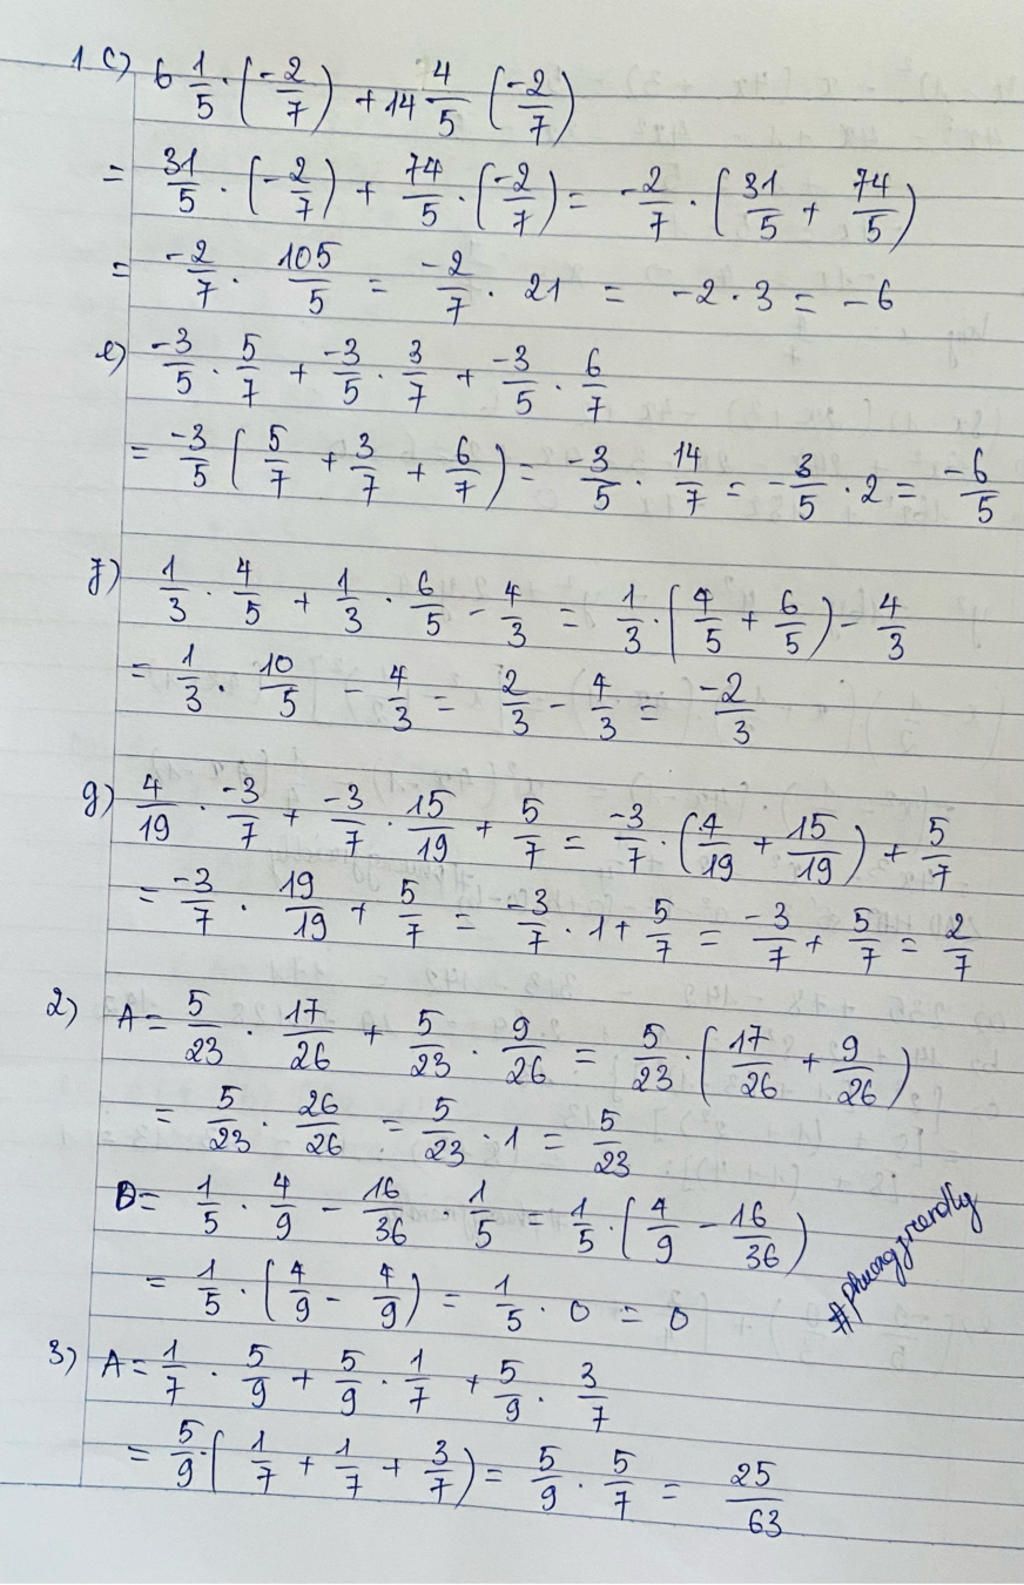 1 c) 6 1/5 · (-2/7) + 14 4/5 (-2/7)
= 31/5 · (-2/7) + 74/5 · (-2/7) = -2/7 · (31/5 + 74/5)
= -2/7 · 105/5 = -2/7 · 21 = -2 · 3 = -6
e) -3/5 · 5/7 + -3/5 · 3/7 + -3/5 · 6/7
= -3/5 (5/7 + 3/7 + 6/7) = -3/5 · 14/7 = -3/5 · 2 = -6/5
f) 1/3 · 4/5 + 1/3 · 6/5 - 4/3 = 1/3 · (4/5 + 6/5) - 4/3
= 1/3 · 10/5 - 4/3 = 2/3 - 4/3 = -2/3
g) 4/19 · -3/7 + -3/7 · 15/19 + 5/7 = -3/7 · (4/19 + 15/19) + 5/7
= -3/7 · 19/19 + 5/7 = -3/7 · 1 + 5/7 = -3/7 + 5/7 = 2/7
2) A = 5/23 · 17/26 + 5/23 · 9/26 = 5/23 · (17/26 + 9/26)
= 5/23 · 26/26 = 5/23 · 1 = 5/23
D = 1/5 · 4/9 - 16/36 · 1/5 = 1/5 · (4/9 - 16/36)
= 1/5 · (4/9 - 4/9) = 1/5 · 0 = 0
#phuongfriendly
3) A = 1/7 · 5/9 + 5/9 · 1/7 + 5/9 · 3/7
= 5/9 · (1/7 + 1/7 + 3/7) = 5/9 · 5/7 = 25/63